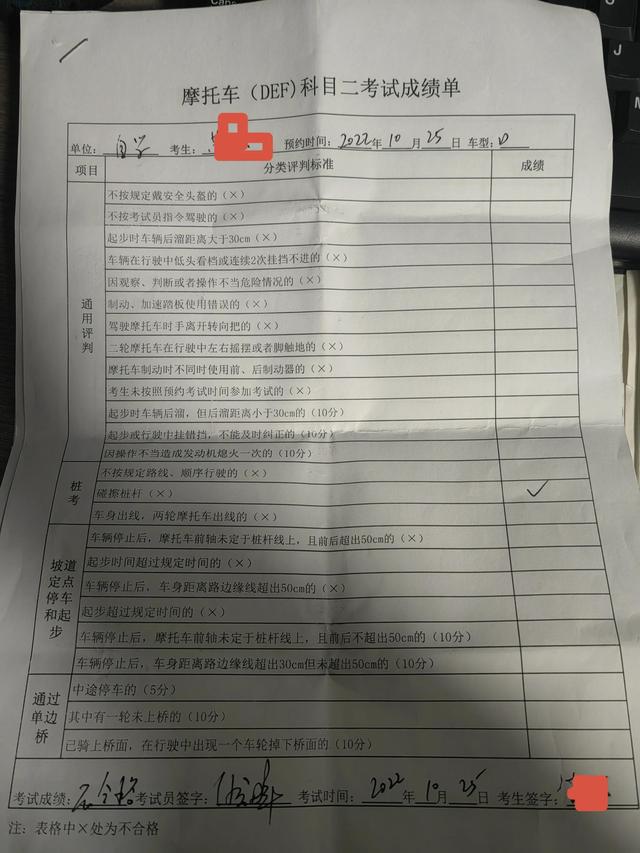 摩托车（DEF）科目二考试成绩单
单位：自学 考生： 预约时间：2022年10月25日 车型：D
项目 分类评判标准 成绩
通用评判
不按规定戴安全头盔的（×）
不按考试员指令驾驶的（×）
起步时车辆后溜距离大于30cm（×）
车辆在行驶中低头看档或连续2次挂挡不进的（×）
因观察、判断或者操作不当危险情况的（×）
制动、加速踏板使用错误的（×）
驾驶摩托车时手离开转向把的（×）
二轮摩托车在行驶中左右摇摆或者脚触地的（×）
摩托车制动时不同时使用前、后制动器的（×）
考生未按照预约考试时间参加考试的（×）
起步时车辆后溜，但后溜距离小于30cm的（10分）
起步或行驶中挂错挡，不能及时纠正的（10分）
因操作不当造成发动机熄火一次的（10分）
桩考
不按规定路线、顺序行驶的（×）
碰擦桩杆（×） ✓
车身出线，两轮摩托车出线的（×）
坡道定点停车和起步
车辆停止后，摩托车前轴未定于桩杆线上，且前后超出50cm的（×）
起步时间超过规定时间的（×）
车辆停止后，车身距离路边缘线超出50cm的（×）
起步超过规定时间的（×）
车辆停止后，摩托车前轴未定于桩杆线上，且前后不超出50cm的（10分）
车辆停止后，车身距离路边缘线超出30cm但未超出50cm的（10分）
通过单边桥
中途停车的（5分）
其中有一轮未上桥的（10分）
已骑上桥面，在行驶中出现一个车轮掉下桥面的（10分）
考试成绩：不合格 考试员签字： 考试时间：2022年10月25日 考生签字：
注：表格中×处为不合格